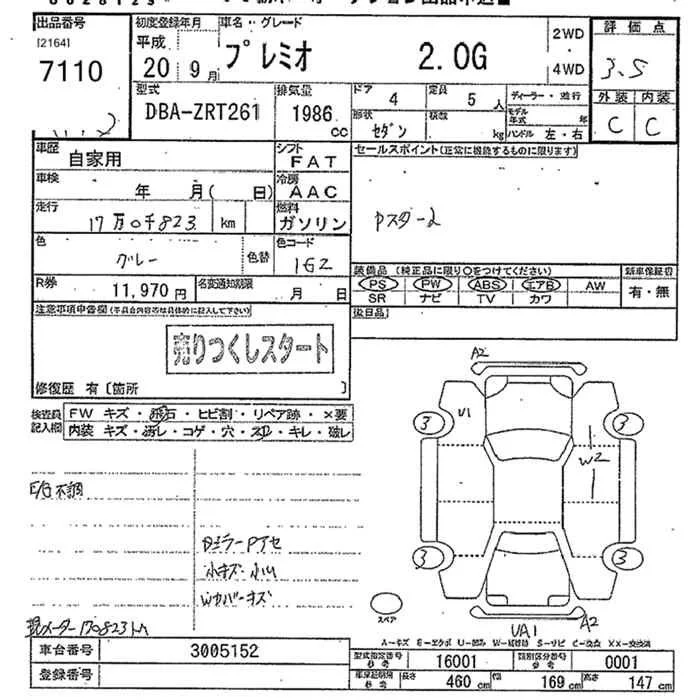 出品番号 初度登録年月 車名・グレード 評価点
[2164] 平成 2WD
7110 20 9月 プレミオ 2.0G 4WD 3.5
外装 内装
型式 排気量 ドア 4 定員 5人 ディーラー・並行
DBA-ZRT261 1986cc 形状 セダン 積載 kg モデル年式 年 C C
ハンドル 左・右
車歴 自家用 シフト FAT セールスポイント(正常に機能するものに限ります)
車検 年 月( 日) 冷房 AAC
走行 17万0千823 km 燃料 ガソリン Pスタート
色 グレー 色替 色コード 1G2
装備品(純正品に限り○をつけてください) 新車保証書
R券 11,970円 名変通知期限 月 日 PS PW ABS エアB AW 有・無
SR ナビ TV カワ
注意事項申告欄(不具合内容等は具体的に記入して下さい) 後日品
売りつくしスタート
修復歴 有〔箇所 〕
検査員記入欄 FW キズ・飛石・ヒビ割・リペア跡・×要
内装 キズ・汚レ・コゲ・穴・スレ・キレ・破レ
A2
3 U1 3
W2
E/G不調
DミラーPアセ
小キズ・小凹
Wカバーキズ
3 3
スペア
UA1 A2
現メーター170823km
A-キズ E-エクボ U-凹み W-補修跡 S-サビ C-腐食 XX-交換済
車台番号 3005152 型式指定番号 参考 16001 類別区分番号 参考 0001
登録番号 車検証明書 参考 長さ 460cm 幅 169cm 高さ 147cm